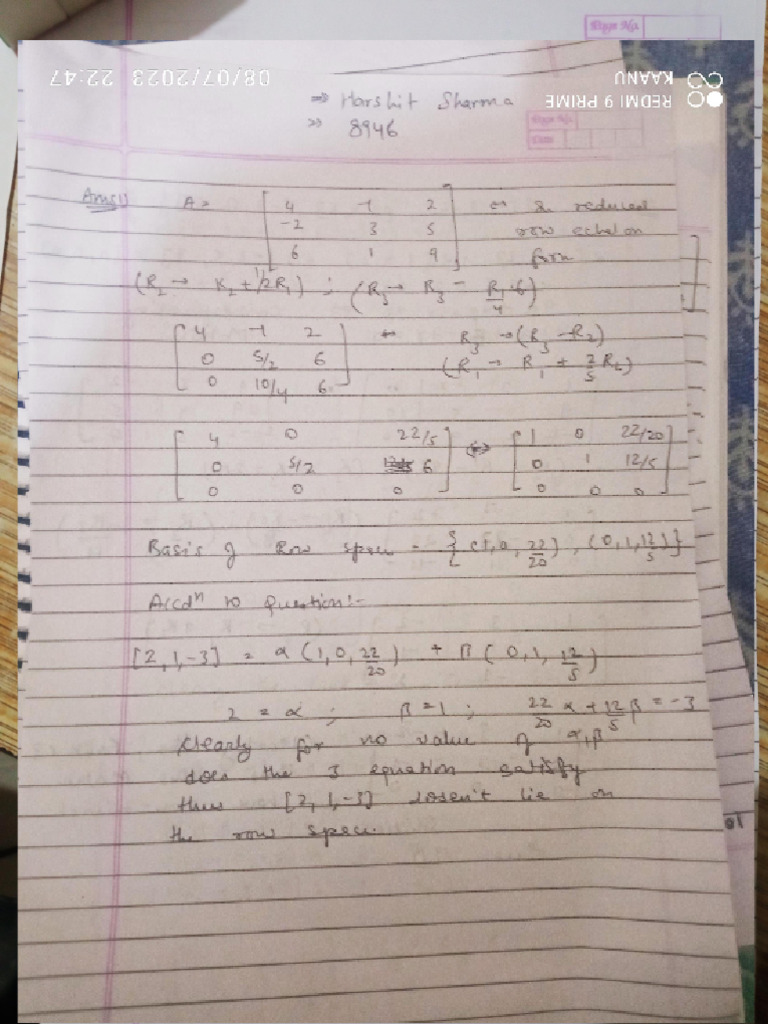 Page No.
08/07/2023 22:47
REDMI 9 PRIME
KAANU
⇒ Harshit Sharma
>> 8946
Page No.
Date
Ans1) A = [4 -1 2] ↔ reduced
[-2 3 5] row echelon
[6 1 9] form
(R2 → R2 + 1/2R1) ; (R3 → R3 - R1/4 ·6)
[4 -1 2] ← R3 → (R3 - R2)
[0 5/2 6] (R1 → R1 + 2/5 R2)
[0 10/4 6]
[4 0 22/5] ↔ [1 0 22/20]
[0 5/2 6] [0 1 12/5]
[0 0 0] [0 0 0]
Basis of Row space = {(1,0,22/20), (0,1,12/5)}
Accdn to Question:-
[2,1,-3] = α(1,0,22/20) + β(0,1,12/5)
2 = α ; β = 1 ; 22/20 α + 12/5 β = -3
Clearly for no value of α,β
does the 3 equation satisfy
thus [2,1,-3] dosen't lie on
the row space.